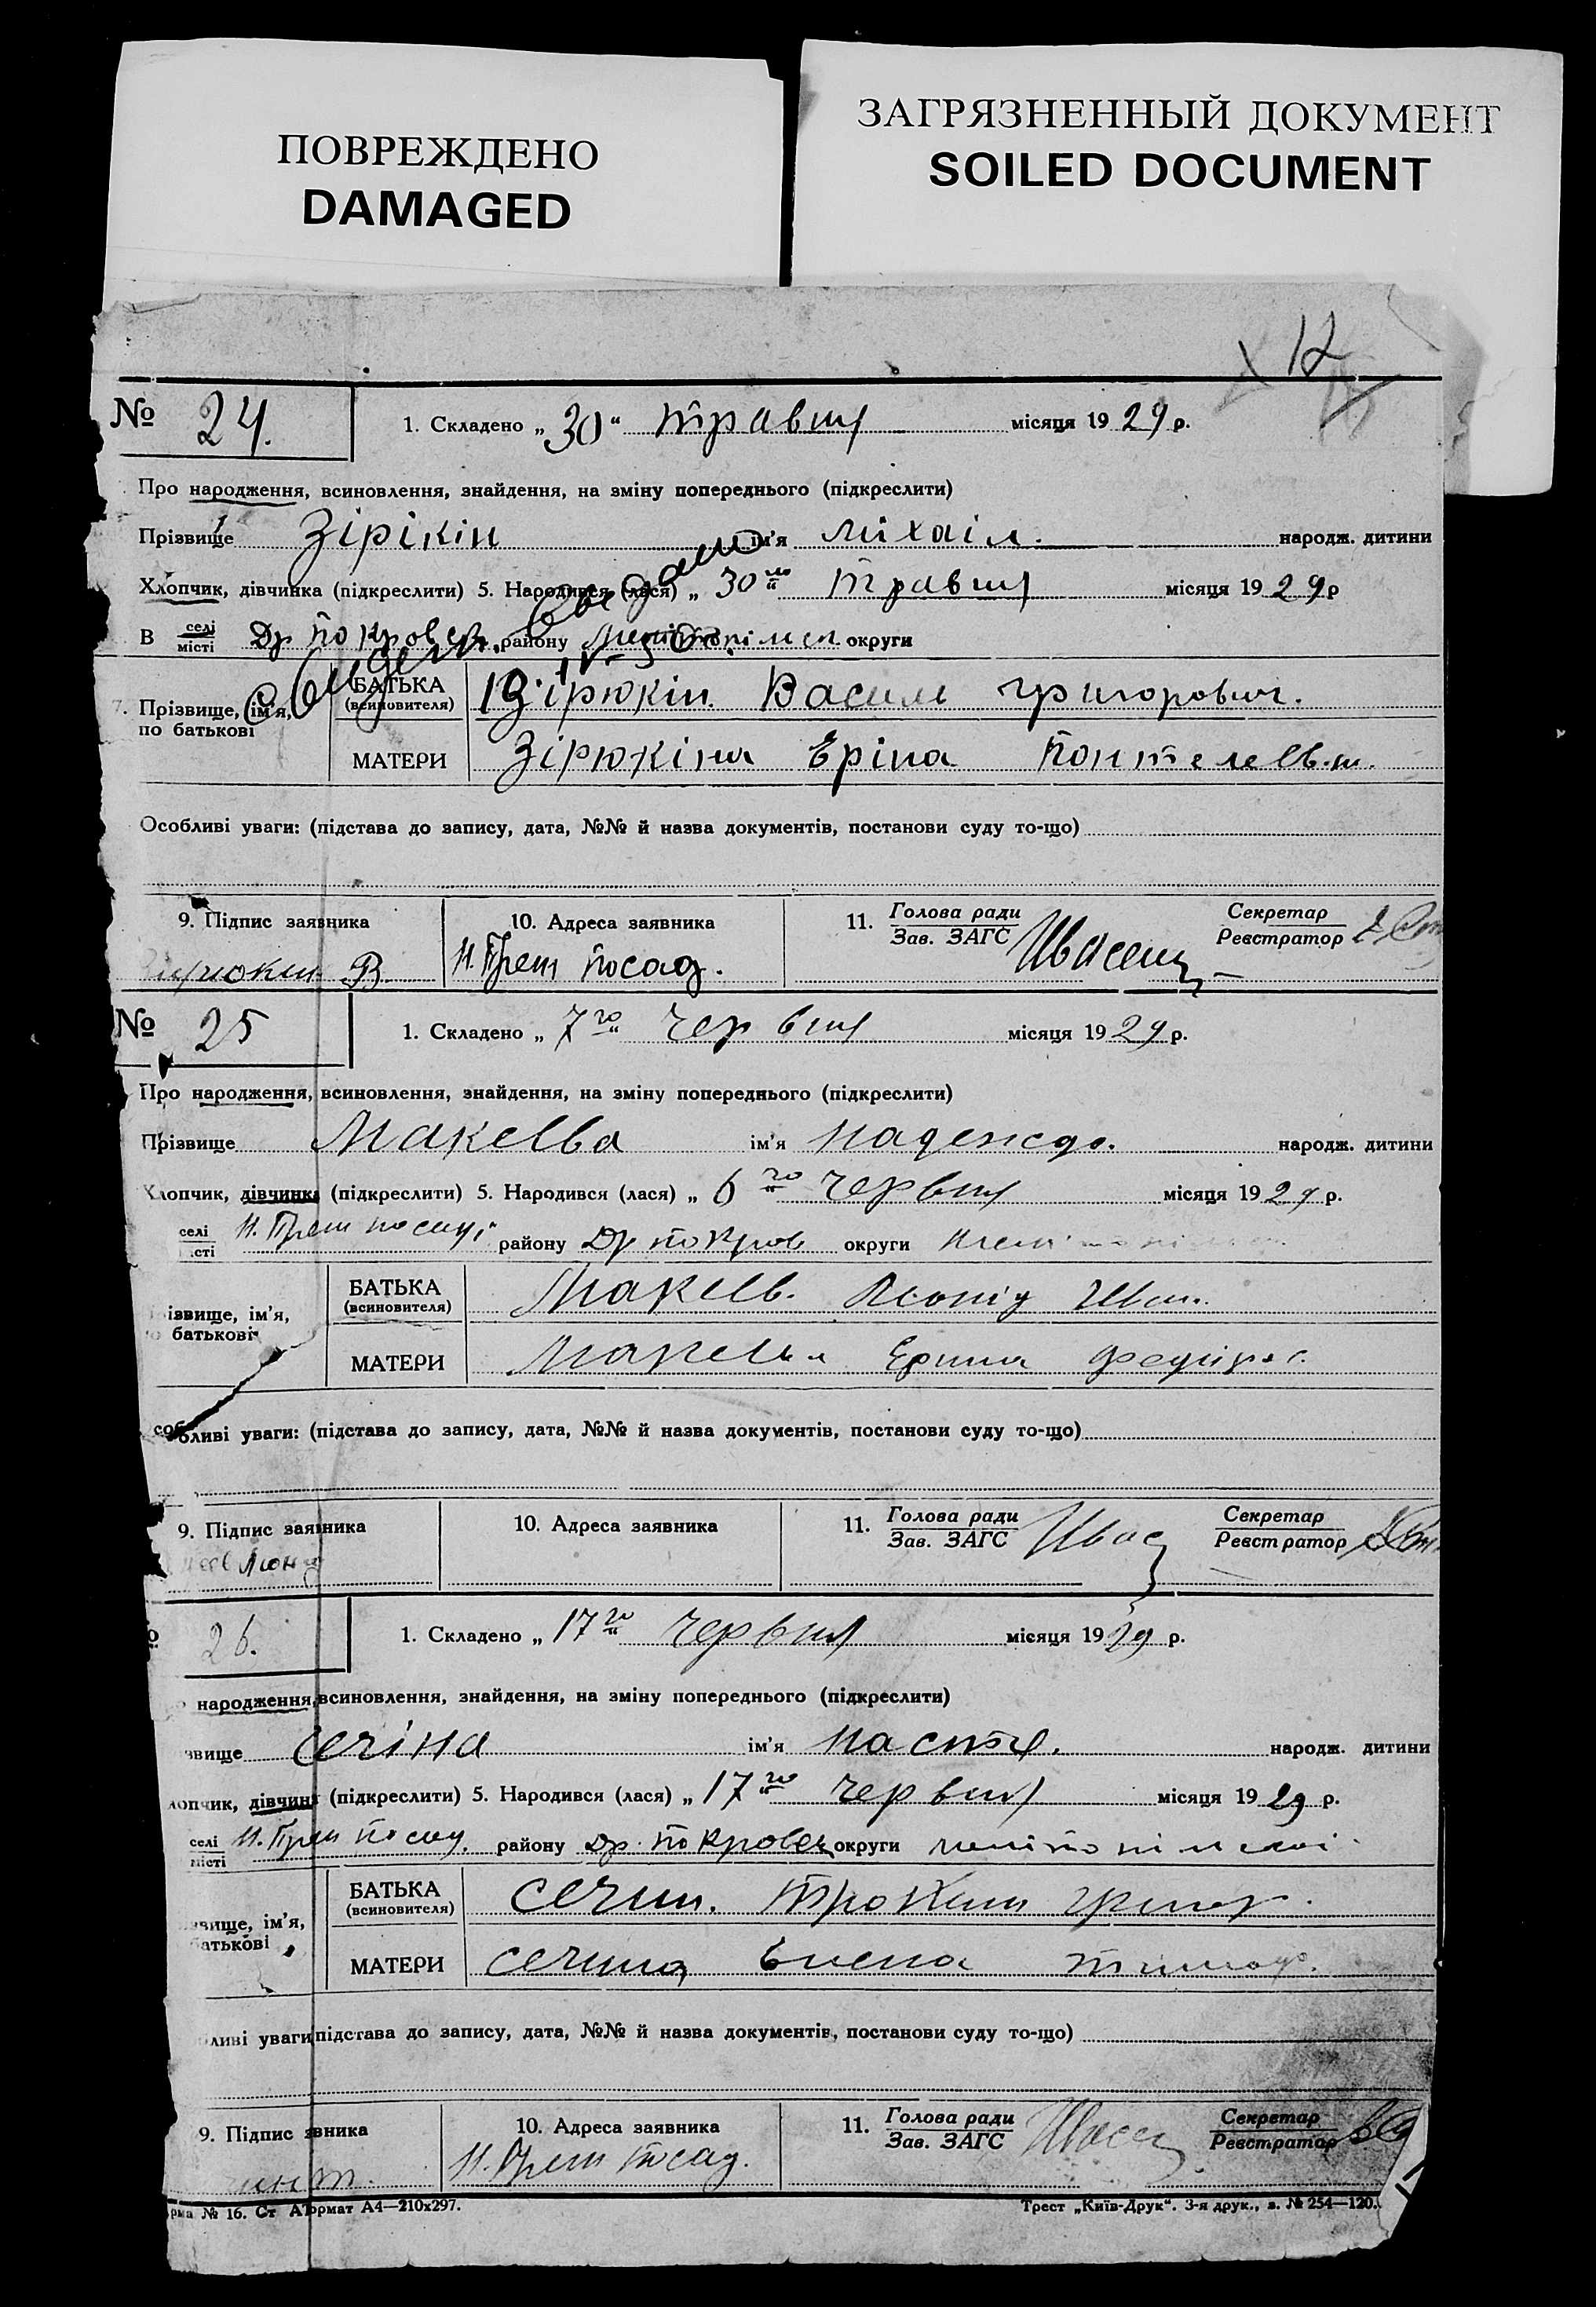 ПОВРЕЖДЕНО
DAMAGED
ЗАГРЯЗНЕННЫЙ ДОКУМЕНТ
SOILED DOCUMENT
12
№ 24. 1. Складено „30“ травня місяця 1929 р.
Про народження, всиновлення, знайдення, на зміну попереднього (підкреслити)
Прізвище Зірікін ім'я Міхаіл. народж. дитини
Хлопчик, дівчинка (підкреслити) 5. Народився (лася) „30го“ травня місяця 1929 р
В селі місті Др Покровск. району округи
7. Прізвище, ім'я, по батькові
БАТЬКА (всиновителя) Зірюкін Василь Григорович.
МАТЕРИ Зірюкіна Еріна
Особливі уваги: (підстава до запису, дата, №№ й назва документів, постанови суду то-що)
9. Підпис заявника 10. Адреса заявника 11. Голова ради Зав. ЗАГС Секретар Реєстратор
Зирюкин В. Н. Трет посад.
№ 25 1. Складено „7го“ червня місяця 1929 р.
Про народження, всиновлення, знайдення, на зміну попереднього (підкреслити)
Прізвище Макеєва ім'я Надежда. народж. дитини
Хлопчик, дівчинка (підкреслити) 5. Народився (лася) „6го“ червня місяця 1929 р.
селі місті району Др Покров округи
Прізвище, ім'я, по батькові
БАТЬКА (всиновителя) Макеєв. Леонід Иван.
МАТЕРИ Макеєва Ерина Федіров.
Особливі уваги: (підстава до запису, дата, №№ й назва документів, постанови суду то-що)
9. Підпис заявника 10. Адреса заявника 11. Голова ради Зав. ЗАГС Секретар Реєстратор
26. 1. Складено „17го“ червня місяця 1929 р.
народження, всиновлення, знайдення, на зміну попереднього (підкреслити)
звище Сечіна ім'я Настя. народж. дитини
лопчик, дівчинка (підкреслити) 5. Народився (лася) „17го“ червня місяця 1929 р.
селі місті Н. Трет Посад. району Др. Покровск округи
звище, ім'я, батькові
БАТЬКА (всиновителя) Сечин. Трохим Григор.
МАТЕРИ Сечина Елена Тимоф.
ливі уваги підстава до запису, дата, №№ й назва документів, постанови суду то-що)
9. Підпис явника 10. Адреса заявника 11. Голова ради Зав. ЗАГС Секретар Реєстратор
Н. Трет посад.
рма № 16. Ст А Формат А4—210х297. Трест „Київ-Друк“. 3-я друк., з. № 254—120.